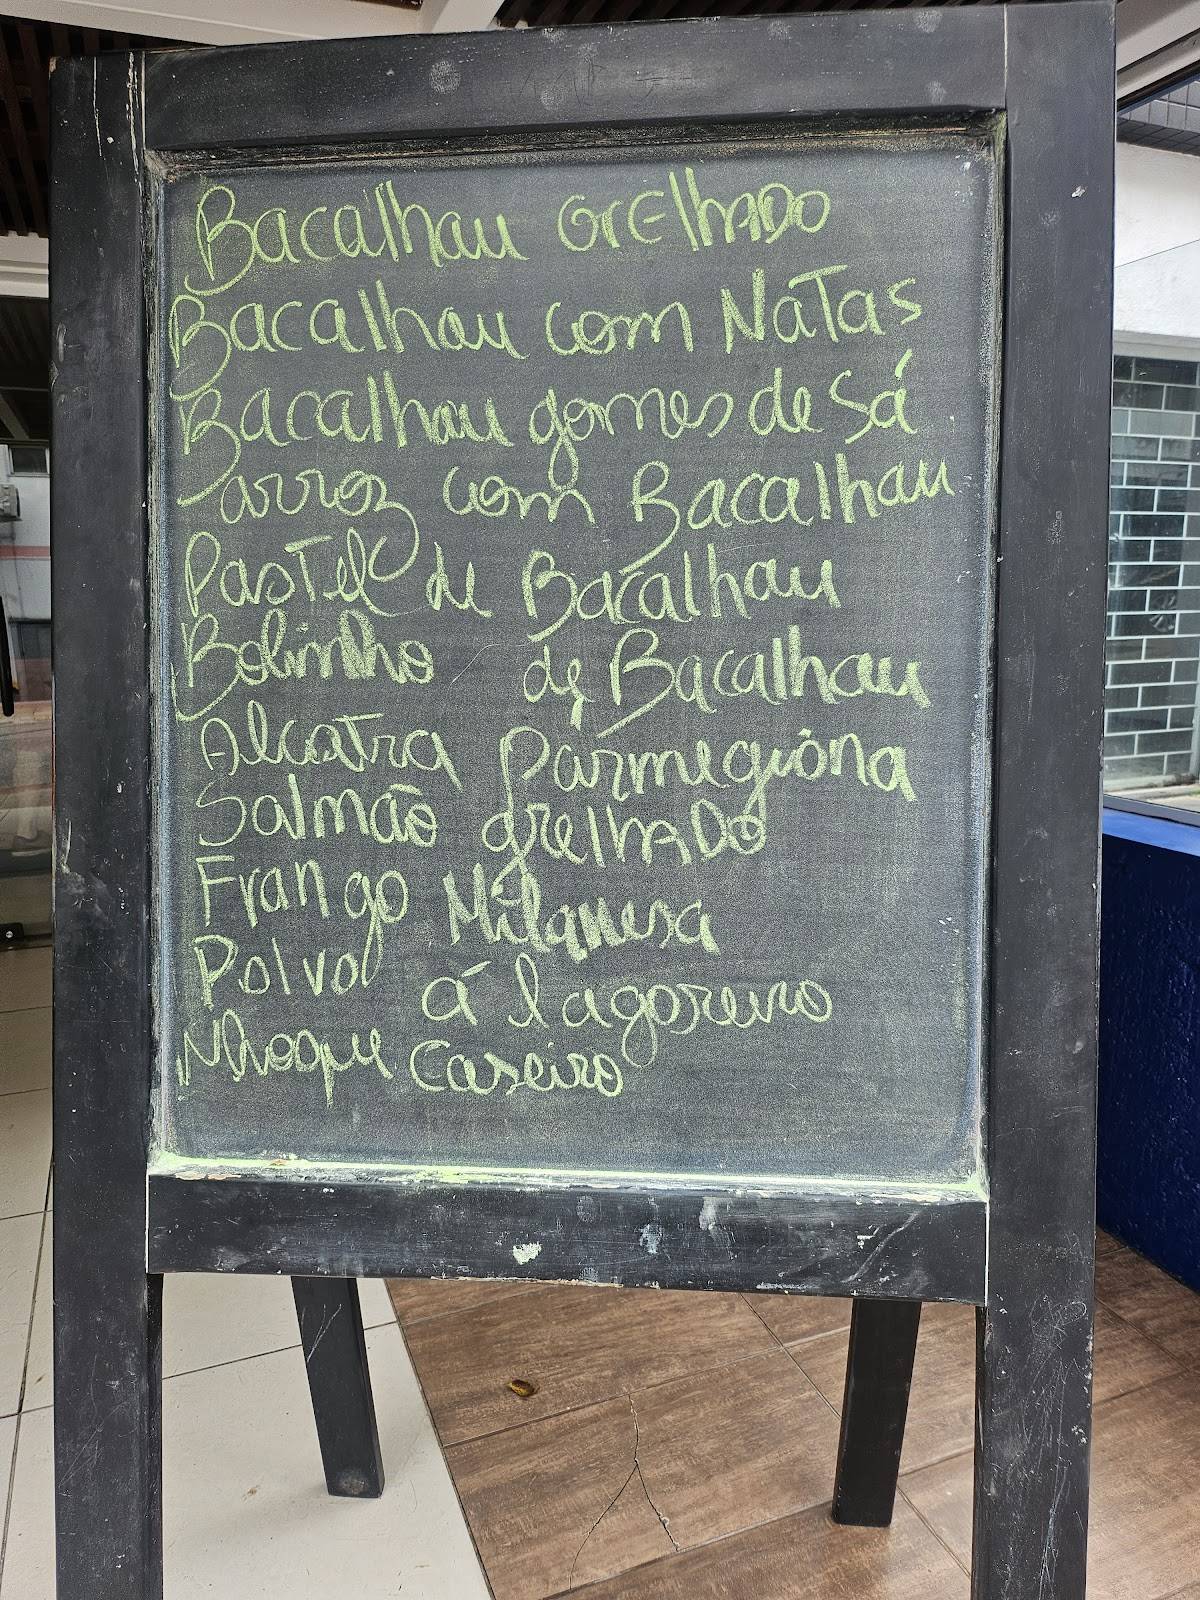 Bacalhau GrElhADO
Bacalhau com NaTas
Bacalhau gomes de Sá
arroz com Bacalhau
PasTel de Bacalhau
Bolinho de Bacalhau
Alcatra parmegiana
Salmão grelhADo
Frango Milanesa
Polvo á lagoreiro
Nhoque Caseiro